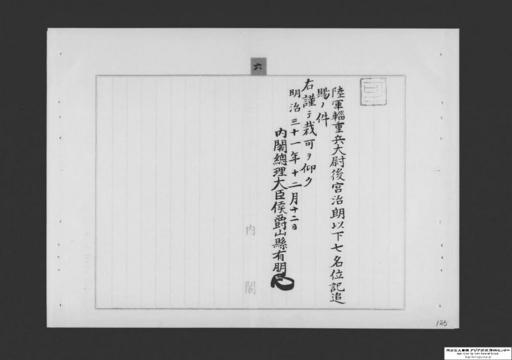 陸軍輜重兵大尉後宮治朗以下七名位記追
賜ノ件
右謹テ裁可ヲ仰ク
明治三十一年十二月十二日
内閣總理大臣侯爵山縣有朋
内閣
六
125